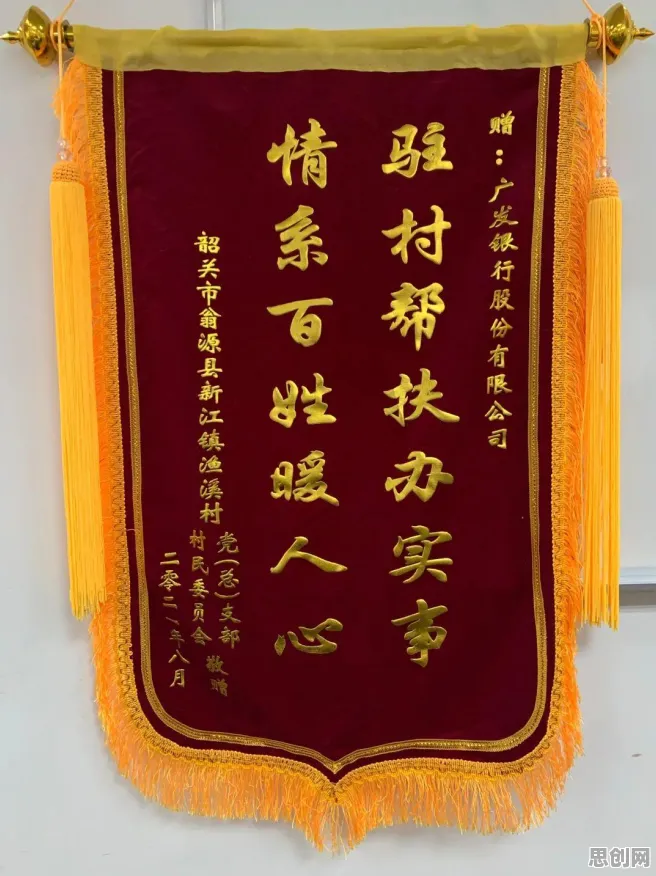 赠：广发银行股份有限公司
驻村帮扶办实事
情系百姓暖人心
韶关市翁源县新江镇渔溪村
党(总)支部
村民委员会
敬赠
二零二一年八月
思创网